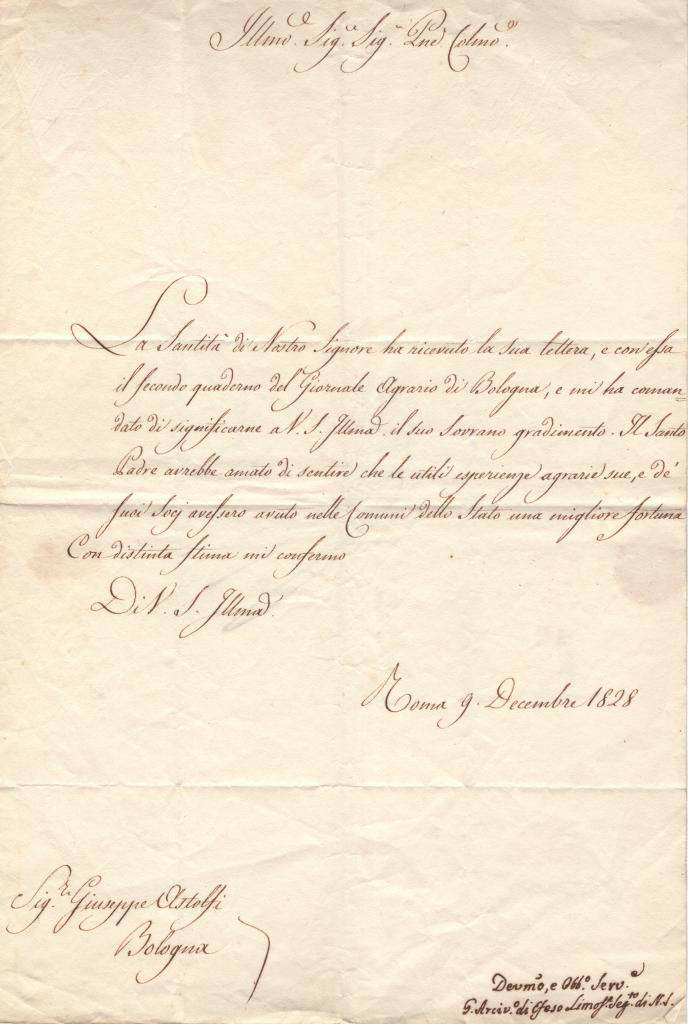 Illmo. Sig.re Sig.r Pne Colmo.
La Santità di Nostro Signore ha ricevuto la sua lettera, e con essa
il secondo quaderno del Giornale Agrario di Bologna, e mi ha coman=
dato di significarne a V. S. Illma. il suo Sovrano gradimento. Il Santo
Padre avrebbe amato di sentire che le utili esperienze agrarie sue, e de'
suoi Socj avessero avuto nelle Comuni dello Stato una migliore fortuna
Con distinta stima mi confermo
Di V. S. Illma.
Roma 9. Decembre 1828
Sig.re Giuseppe Astolfi
Bologna
Devmo, e Obb.o Serv.e
G. Arciv.o di Efeso Limos.re Seg.to di N.S.